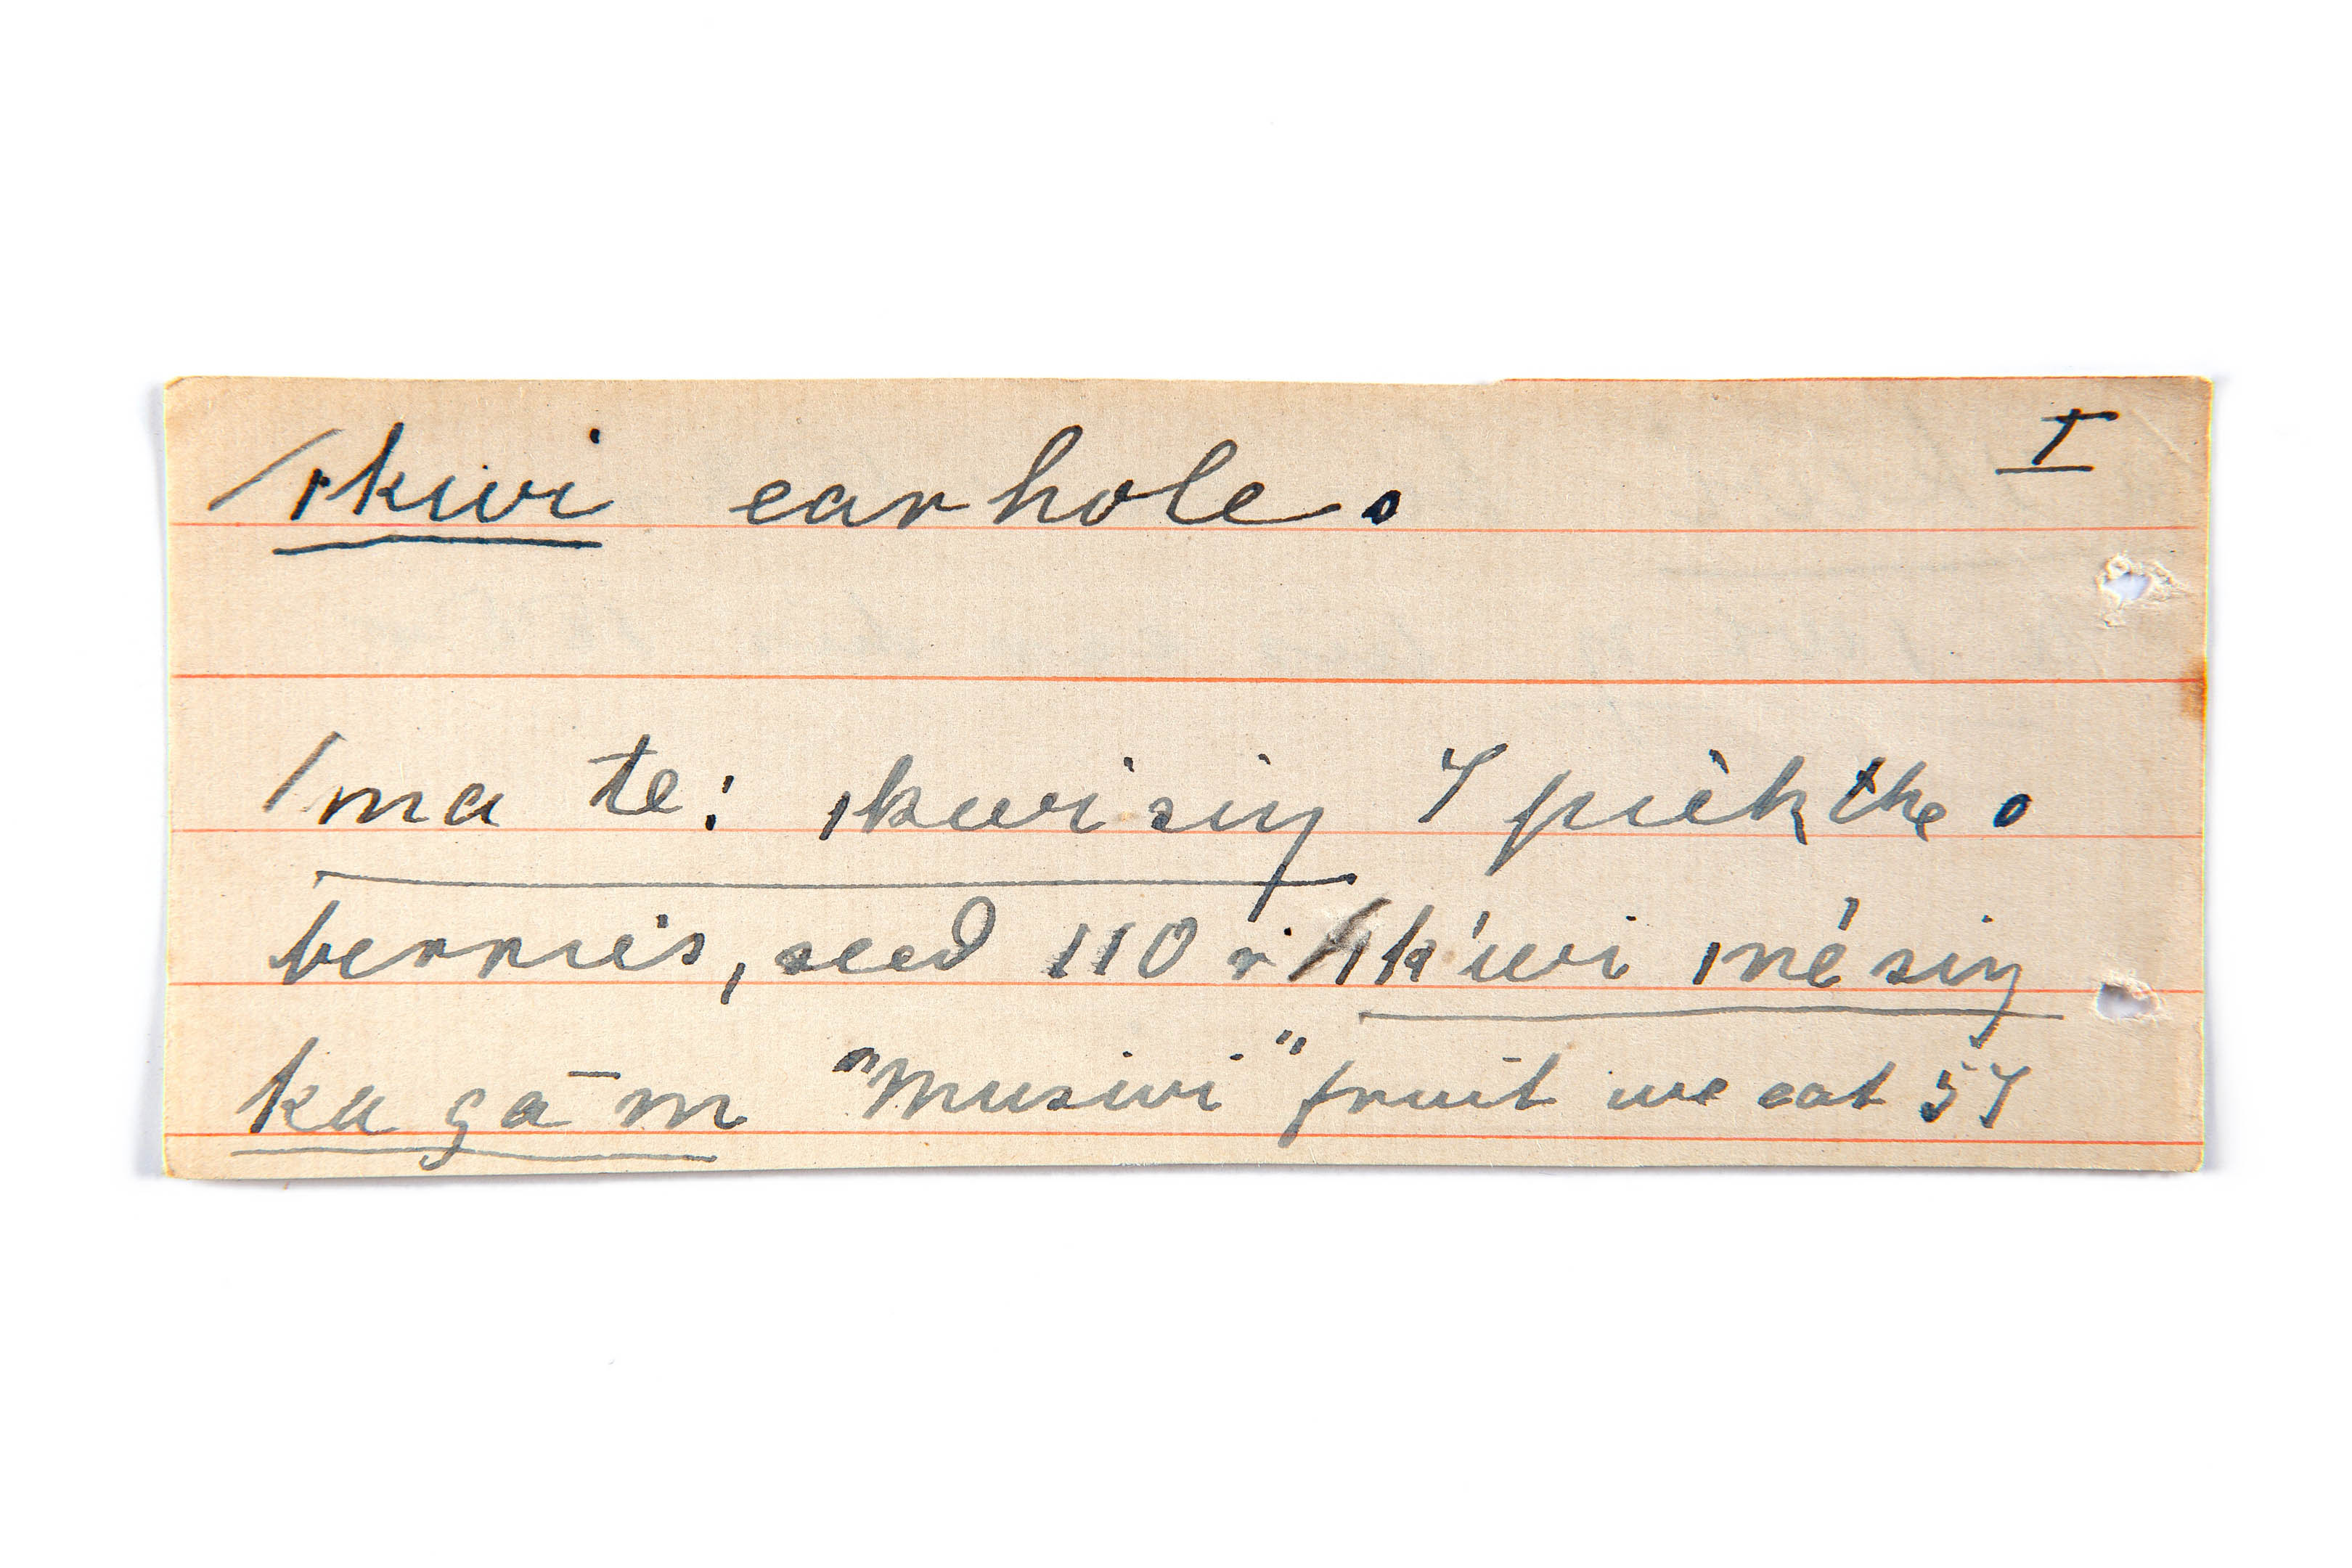 ıkwi earhole. I
ma te: ıkwisiŋ I pick the.
berries, seed 110 r ık'wi ıné siŋ
ka gā m "Musiwi" fruit we eat 57